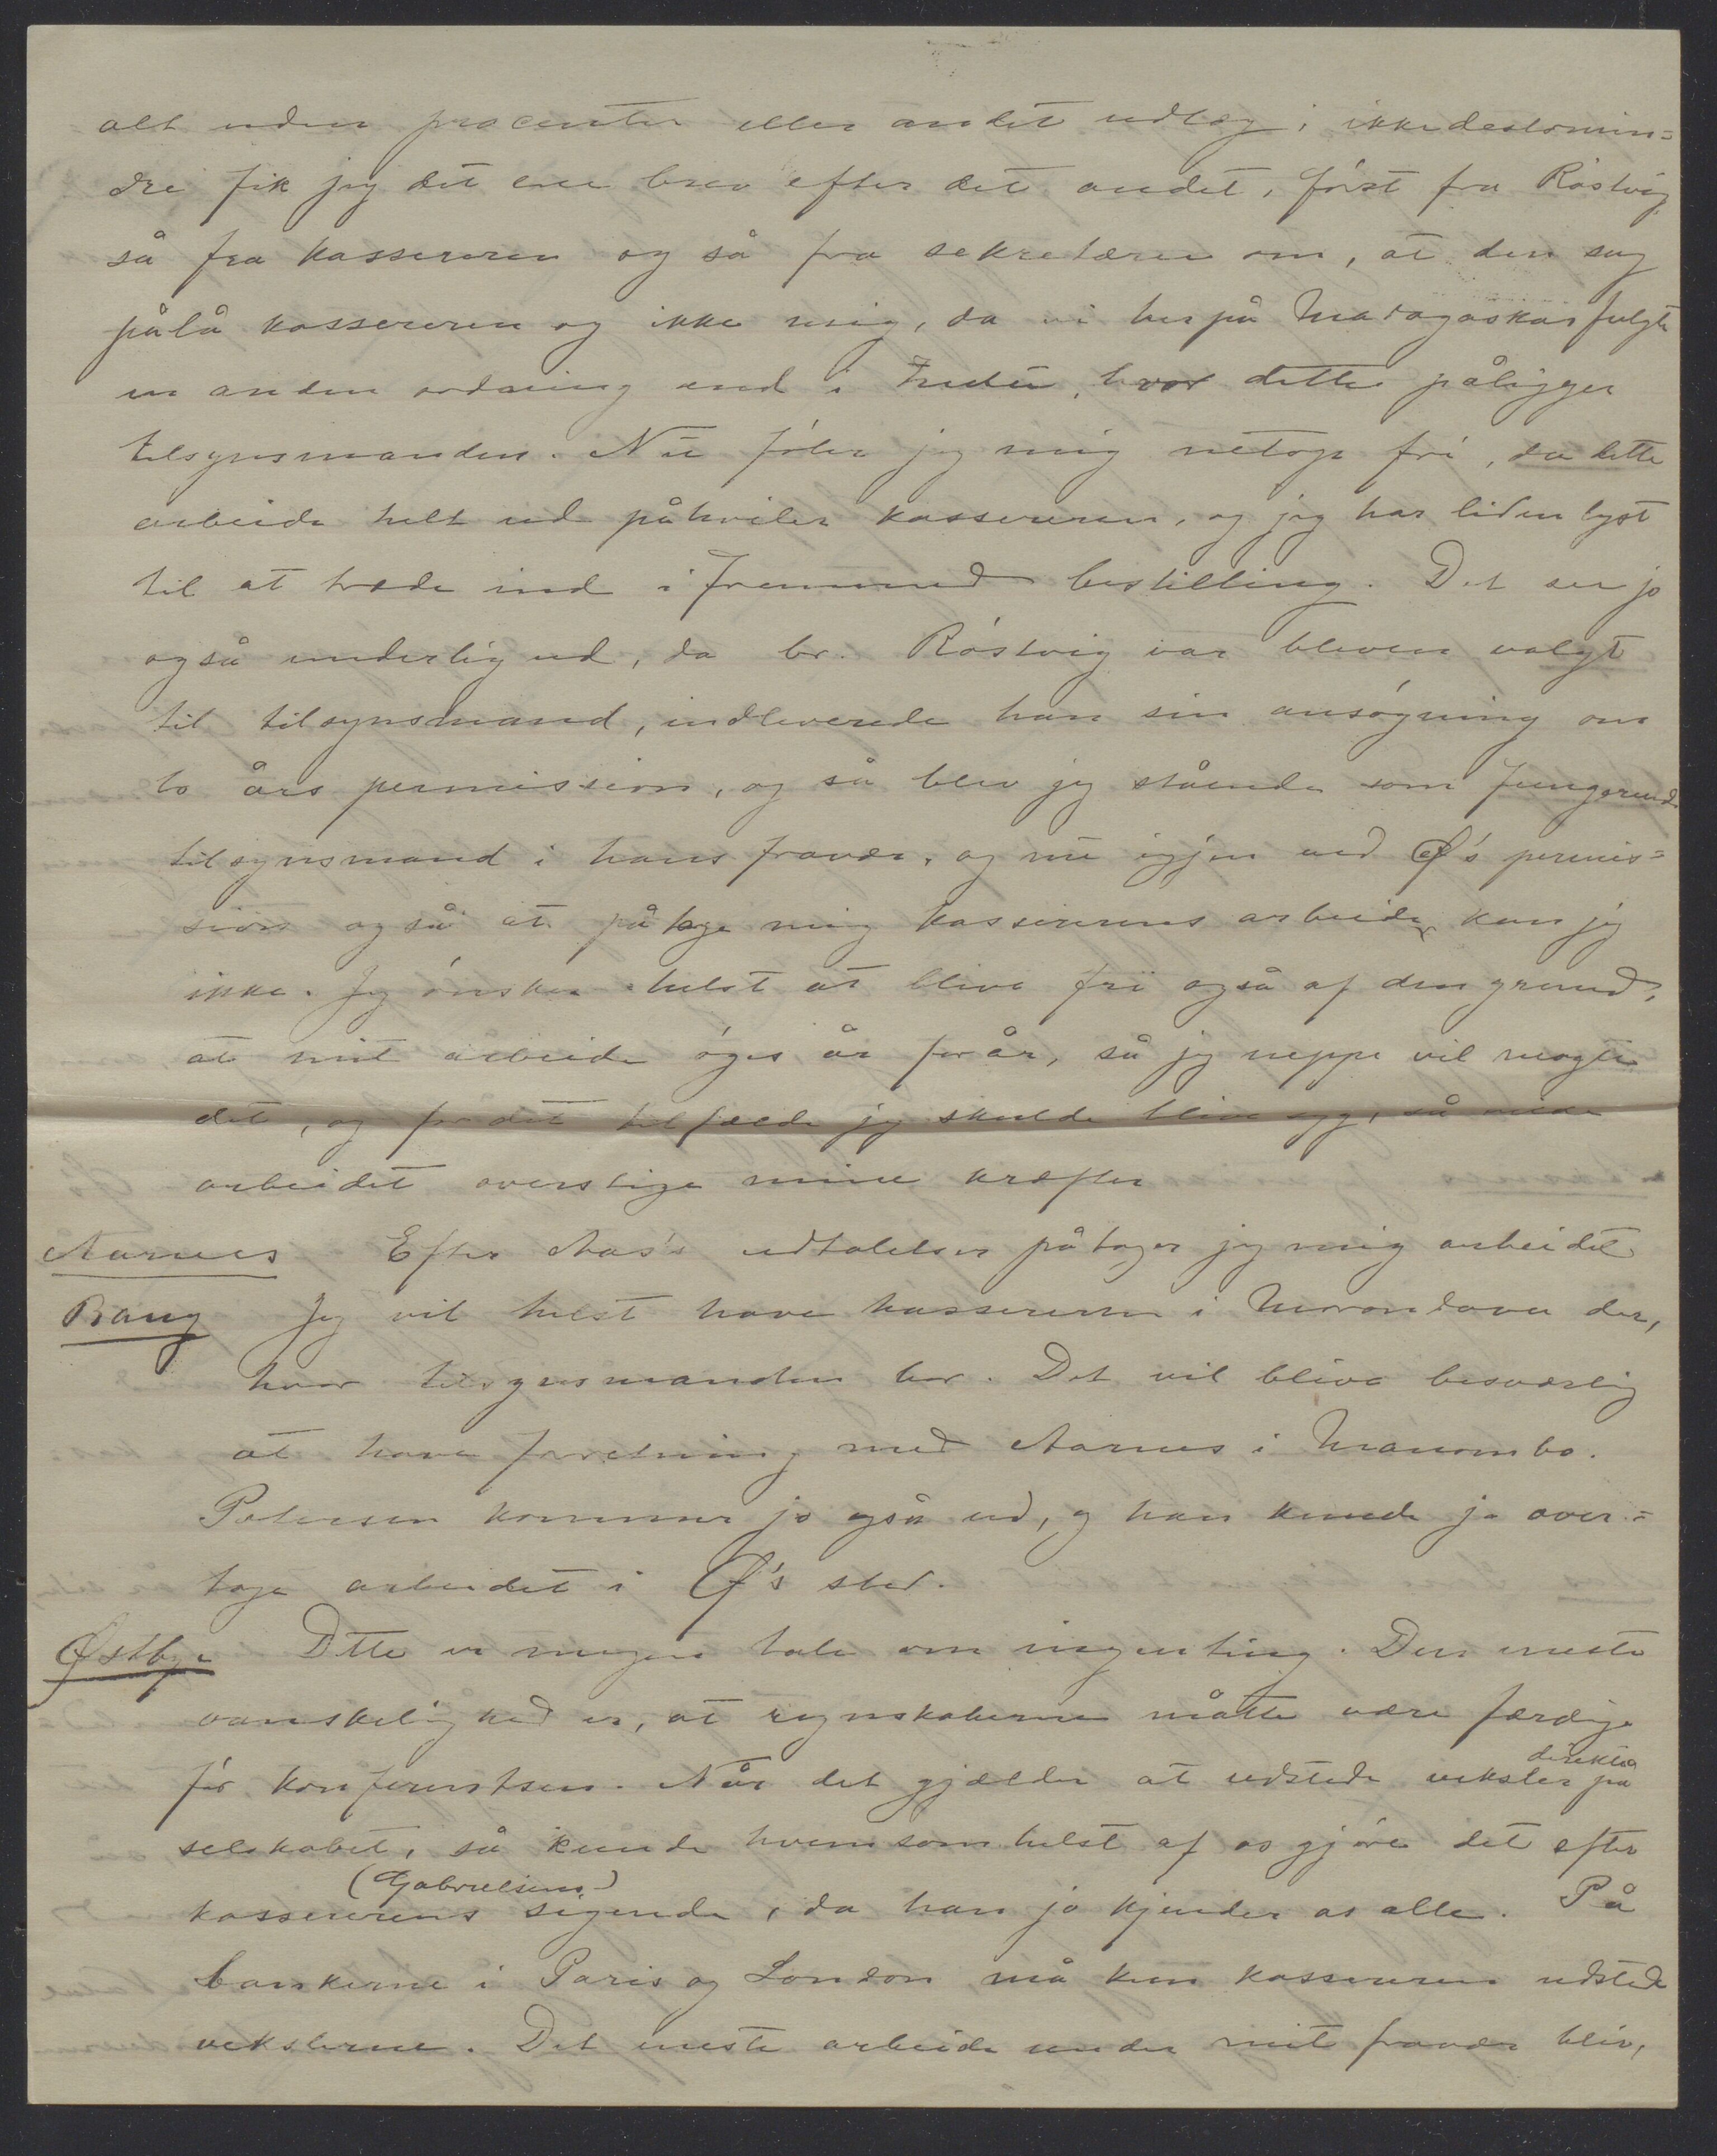 alt uden procenter eller andet udlæg; ikkedestomin=
dre fik jeg det ene brev efter det andet, først fra Røstvig
så fra kassereren og så fra sekretæren om, at den sag
pålå kassereren og ikke mig, da vi her på Madagaskar fulgte
en anden ordning end i Indien, hvor dette påligger
tilsynsmanden. Nu føler jeg mig netop fri, da dette
arbeide helt ud påhviler kassereren, og jeg har liden lyst
til at træde ind i fremmed bestilling. Det ser jo
også underlig ud, da br. Røstvig var bleven valgt
til tilsynsmand, indleverede han sin ansøgning om
to års permission, og så blev jeg stående som fungerende
tilsynsmand i hans fravær, og nu igjen ved Ø's permis=
sion også at påtage mig kassererens arbeide, kan jeg
ikke. Jeg ønsker helst at blive fri også af den grund,
at mit arbeide øges år for år, så jeg neppe vil magte
det, og for det tilfælde jeg skulde blive syg, så vilde
arbeidet overstige mine kræfter
Aarnes Efter Aas's udtalelser påtager jeg mig arbeidet
Bang Jeg vil helst have kassereren i Morondava der,
hvor tilsynsmanden bor. Det vil blive besværlig
at have forretning med Aarnes i Manombo.
Petersen kommer jo også ud, og han kunde jo over=
tage arbeidet i Ø's sted.
Østbye Dette er megen tale om ingenting. Den eneste
vanskelighed er, at regnskaberne måtte være færdige
før konferentsen. Når det gjælder at udstede veksler direkte på
selskabet, så kunde hvemsomhelst af os gjøre det efter
kassererens (Gabrielsens) sigende, da han jo kjender os alle. På
bankerne i Paris og London må kun kassereren udstede
vekslerne. Det meste arbeide under mit fravær bliv,